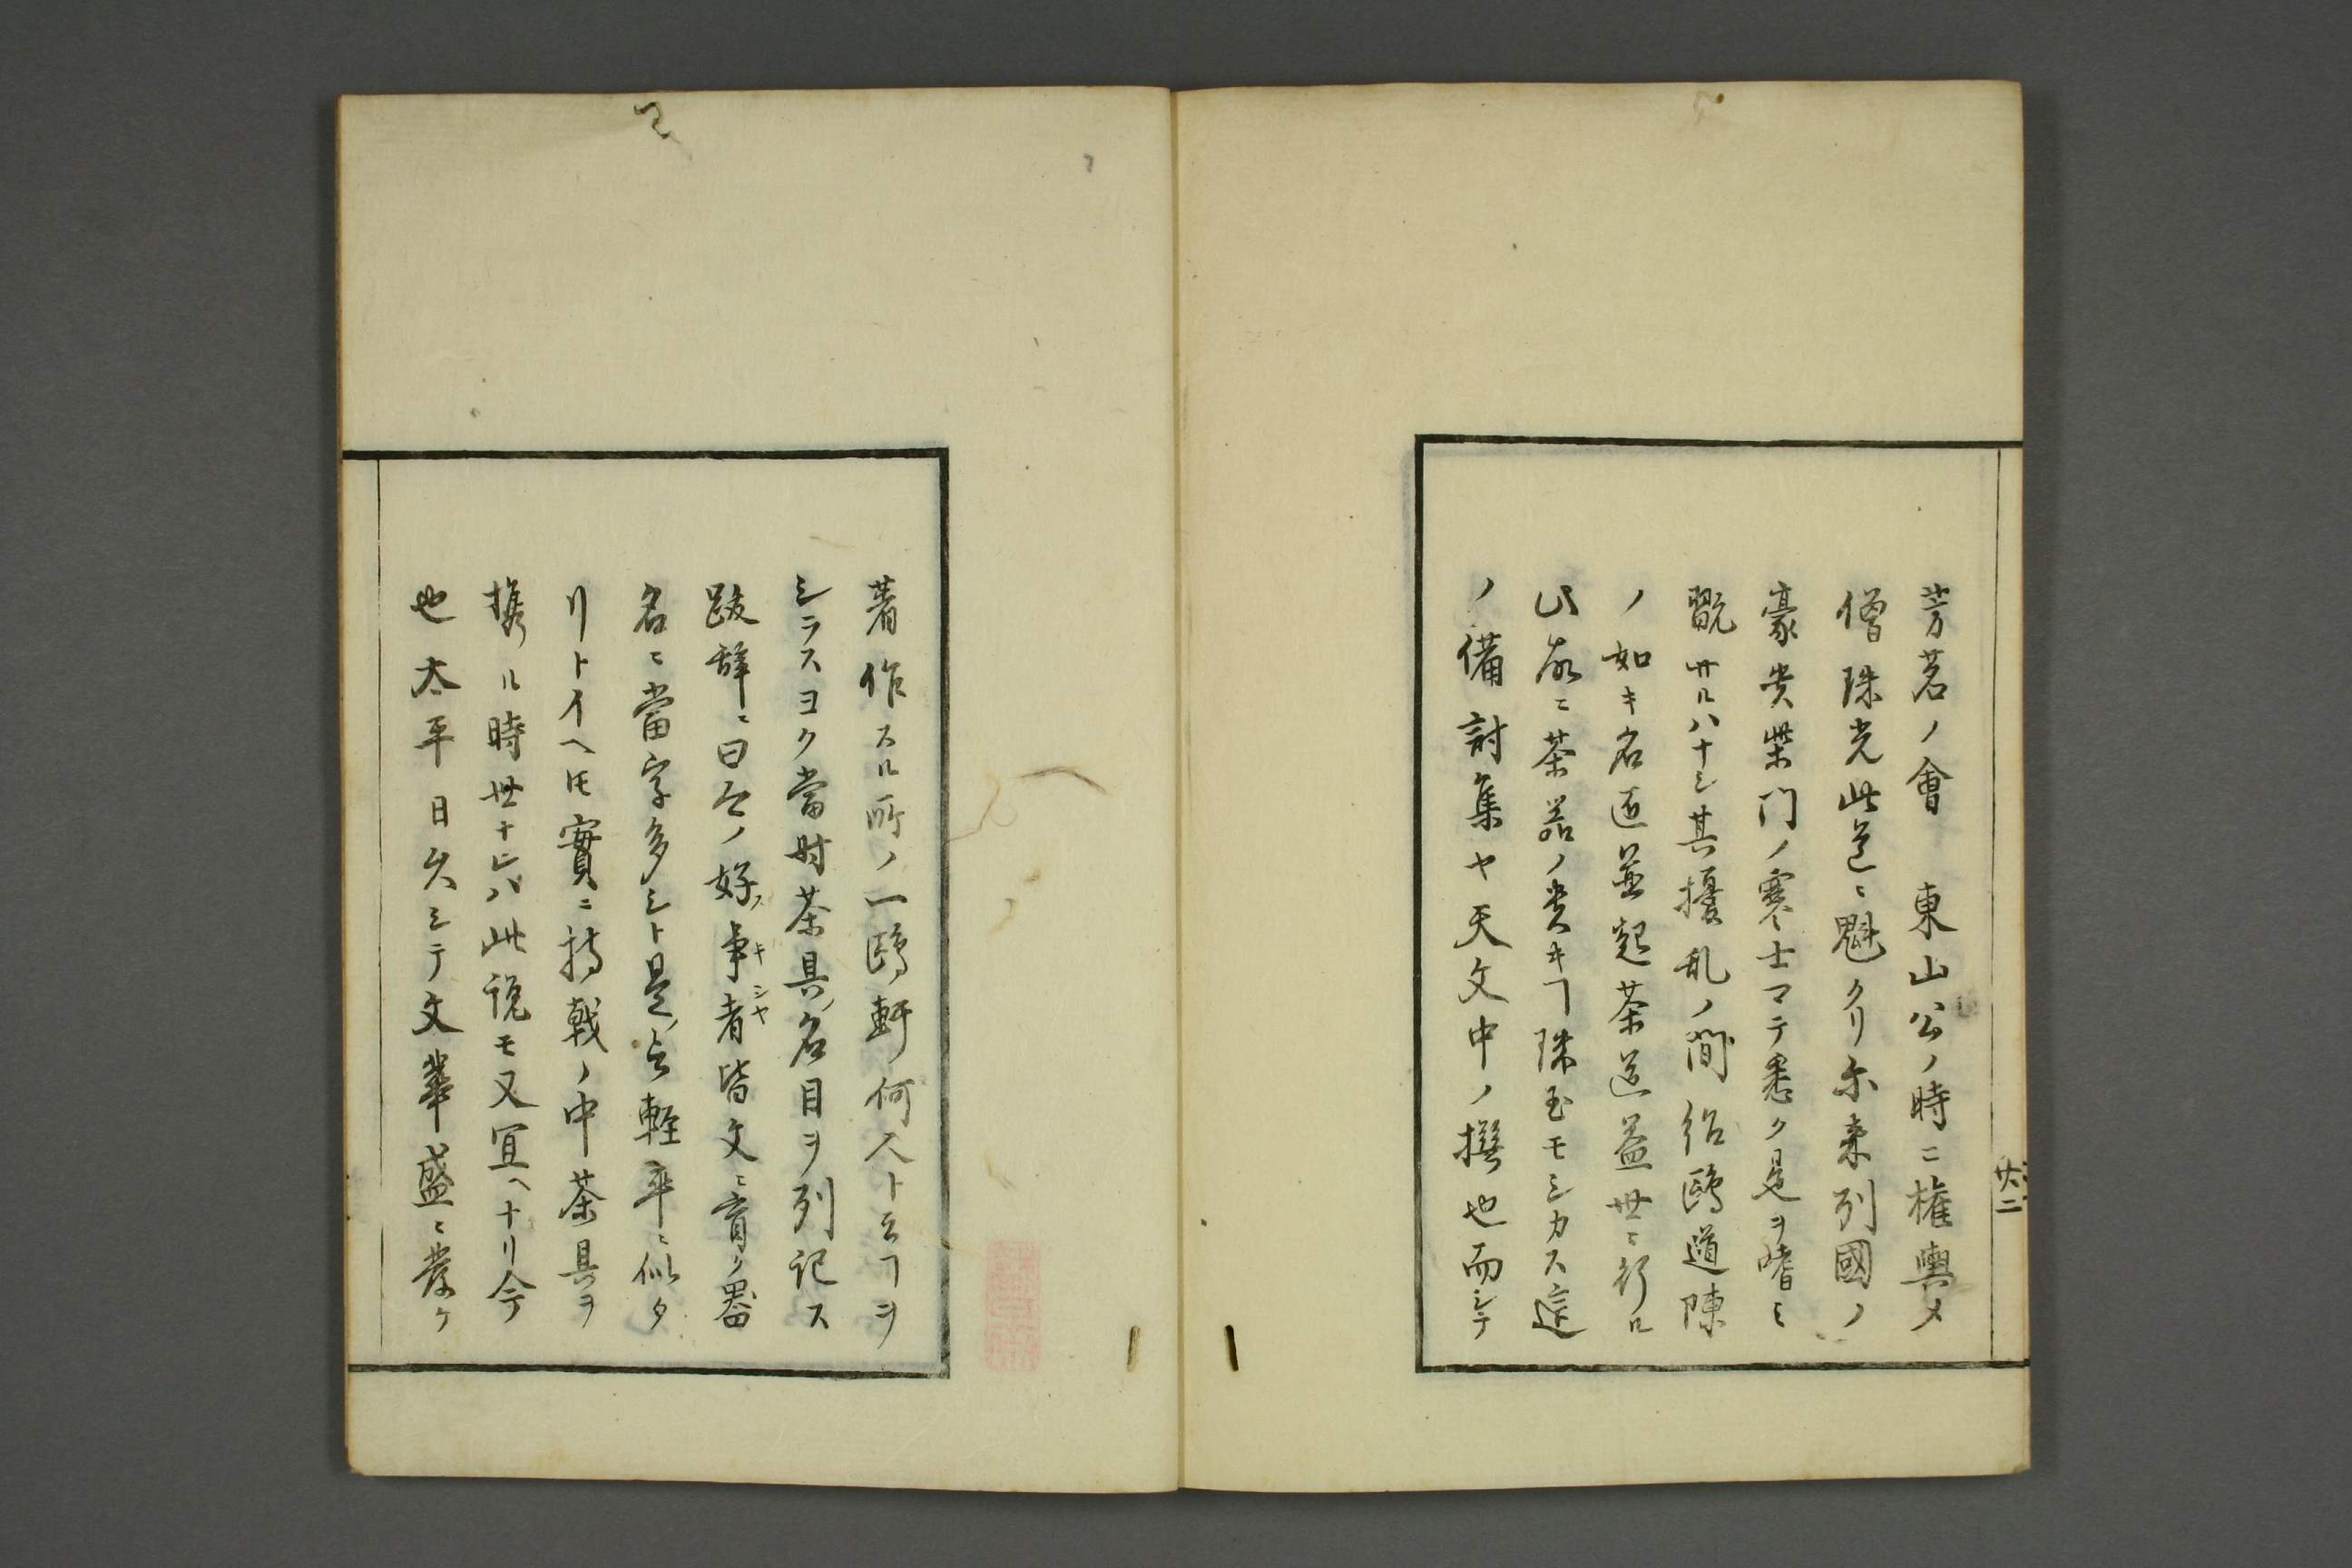 芳茗ノ會　東山公ノ時ニ権輿メ
僧珠光此道ニ魁クリ尓来列國ノ
豪貴柴門ノ寒士マテ悉ク是ヲ嗜ミ
翫サルハナシ其擾乱ノ間紹鴎道陳
ノ如キ名匠並起茶道益世ニ行ル
此故ニ茶器ノ貴キヿ珠玉モシカス這
ノ備討集ヤ天文中ノ撰也而シテ
廿二
著作スル所ノ一鴎軒何人ト云ヿヲ
シラスヨク當時茶具ノ名目ヲ列記ス
跋辞ニ曰今ノ好事者皆文ニ盲ク器
ノキシヤ
名ニ當字多シト是ノ言軽卒ニ似タ
リトイヘ𪜈實ニ持戟ノ中茶具ヲ
携ル時世ナレハ此説モ又宜ヘナリ今
也太平日久シテ文華盛ニ発ケ